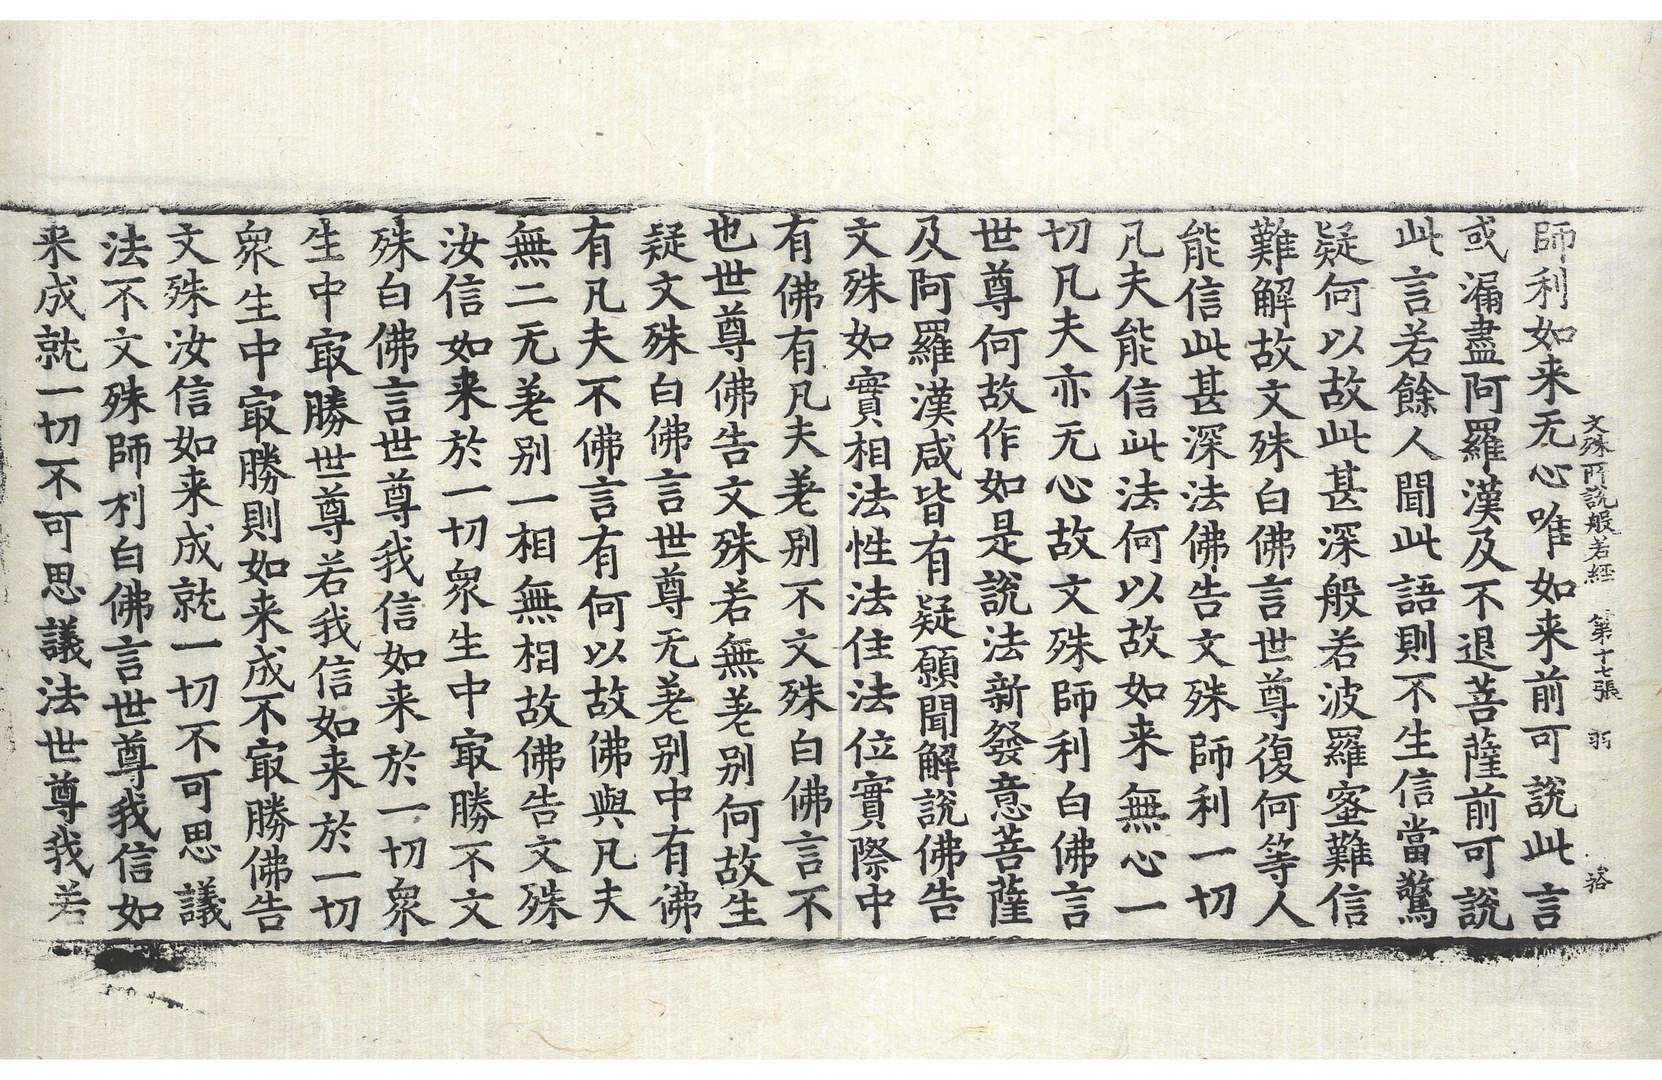 文殊所說般若經 第十七張 弱
師利如来无心唯如来前可說此言
或漏盡阿羅漢及不退菩薩前可說
此言若餘人聞此語則不生信當驚
疑何以故此甚深般若波羅蜜難信
難解故文殊白佛言世尊復何等人
能信此甚深法佛告文殊師利一切
凡夫能信此法何以故如来無心一
切凡夫亦无心故文殊師利白佛言
世尊何故作如是說法新發意菩薩
及阿羅漢咸皆有疑願聞解說佛告
文殊如實相法性法住法位實際中
有佛有凡夫差别不文殊白佛言不
也世尊佛告文殊若無差别何故生
疑文殊白佛言世尊无差别中有佛
有凡夫不佛言有何以故佛與凡夫
無二无差别一相無相故佛告文殊
汝信如来於一切衆生中冣勝不文
殊白佛言世尊我信如来於一切衆
生中冣勝世尊若我信如来於一切
衆生中冣勝則如来成不冣勝佛告
文殊汝信如来成就一切不可思議
法不文殊師利白佛言世尊我信如
来成就一切不可思議法世尊我若